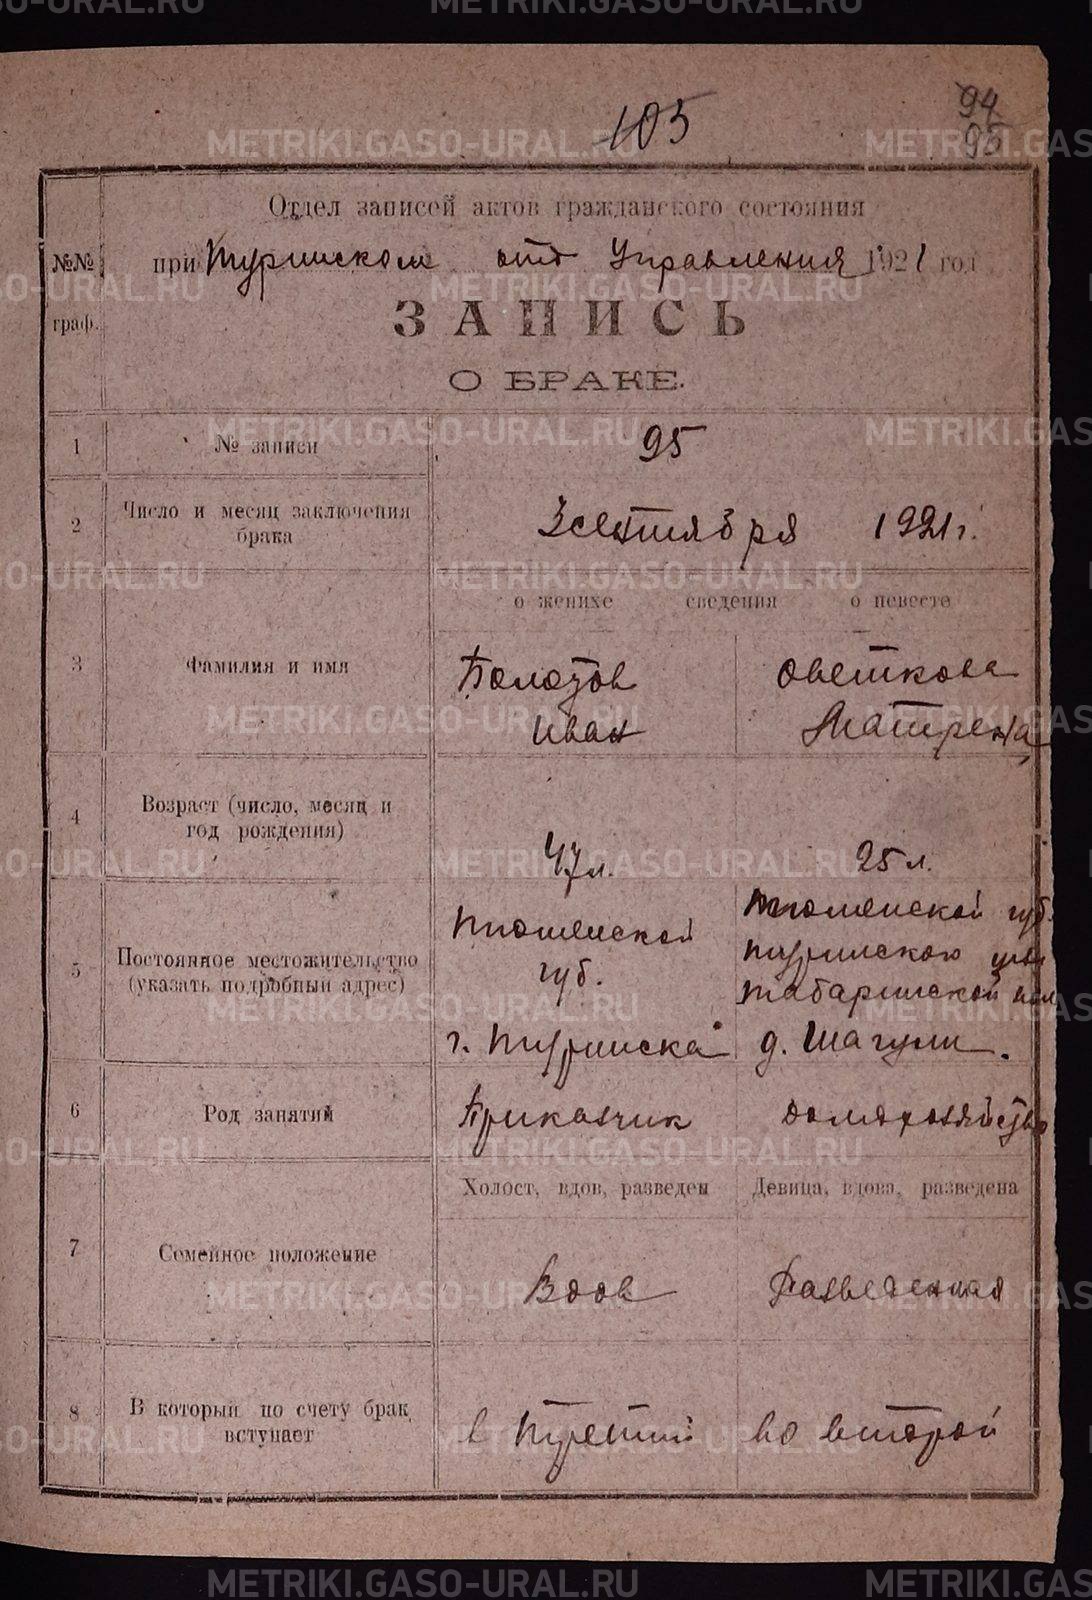 METRIKI.GASO-URAL.RU
105
94
95
Отдел записей актов гражданского состояния
№№ граф.
при Туринском отд Управления 1921 год
ЗАПИСЬ
О БРАКЕ.
1 № записи 95
2 Число и месяц заключения брака 3 сентября 1921 г.
о женихе сведения о невесте
3 Фамилия и имя
Болотов Иван
Оветкова Матрена
4 Возраст (число, месяц и год рождения)
47 л. 25 л.
5 Постоянное местожительство (указать подробный адрес)
Тюменской губ.
г. Туринска
Тюменской губ.
Туринского уез
Табаринской вол
д. Шагули.
6 Род занятий
Приказчик домахозяйство
Холост, вдов, разведен Девица, вдова, разведена
7 Семейное положение
Вдов Разведенная
8 В который по счету брак вступает
в третий во второй